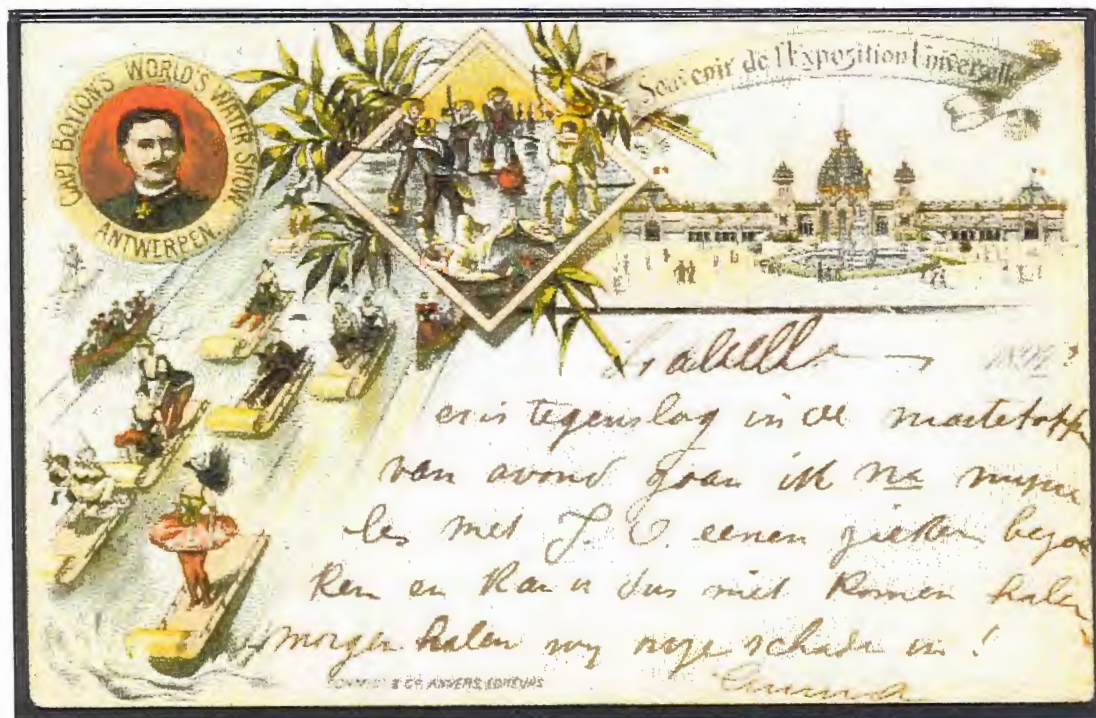 CAPT BOYTON'S WORLD'S WATER SHOW
ANTWERPEN
Souvenir de l'Exposition Universelle
Isabelle
er is tegenslag in de
van avond gaan ik na mijne
les met J. C. eenen zieken bezoe
ken en kan u dus niet komen halen
morgen halen wij onze schade in !
& Co ANVERS, EDITEURS